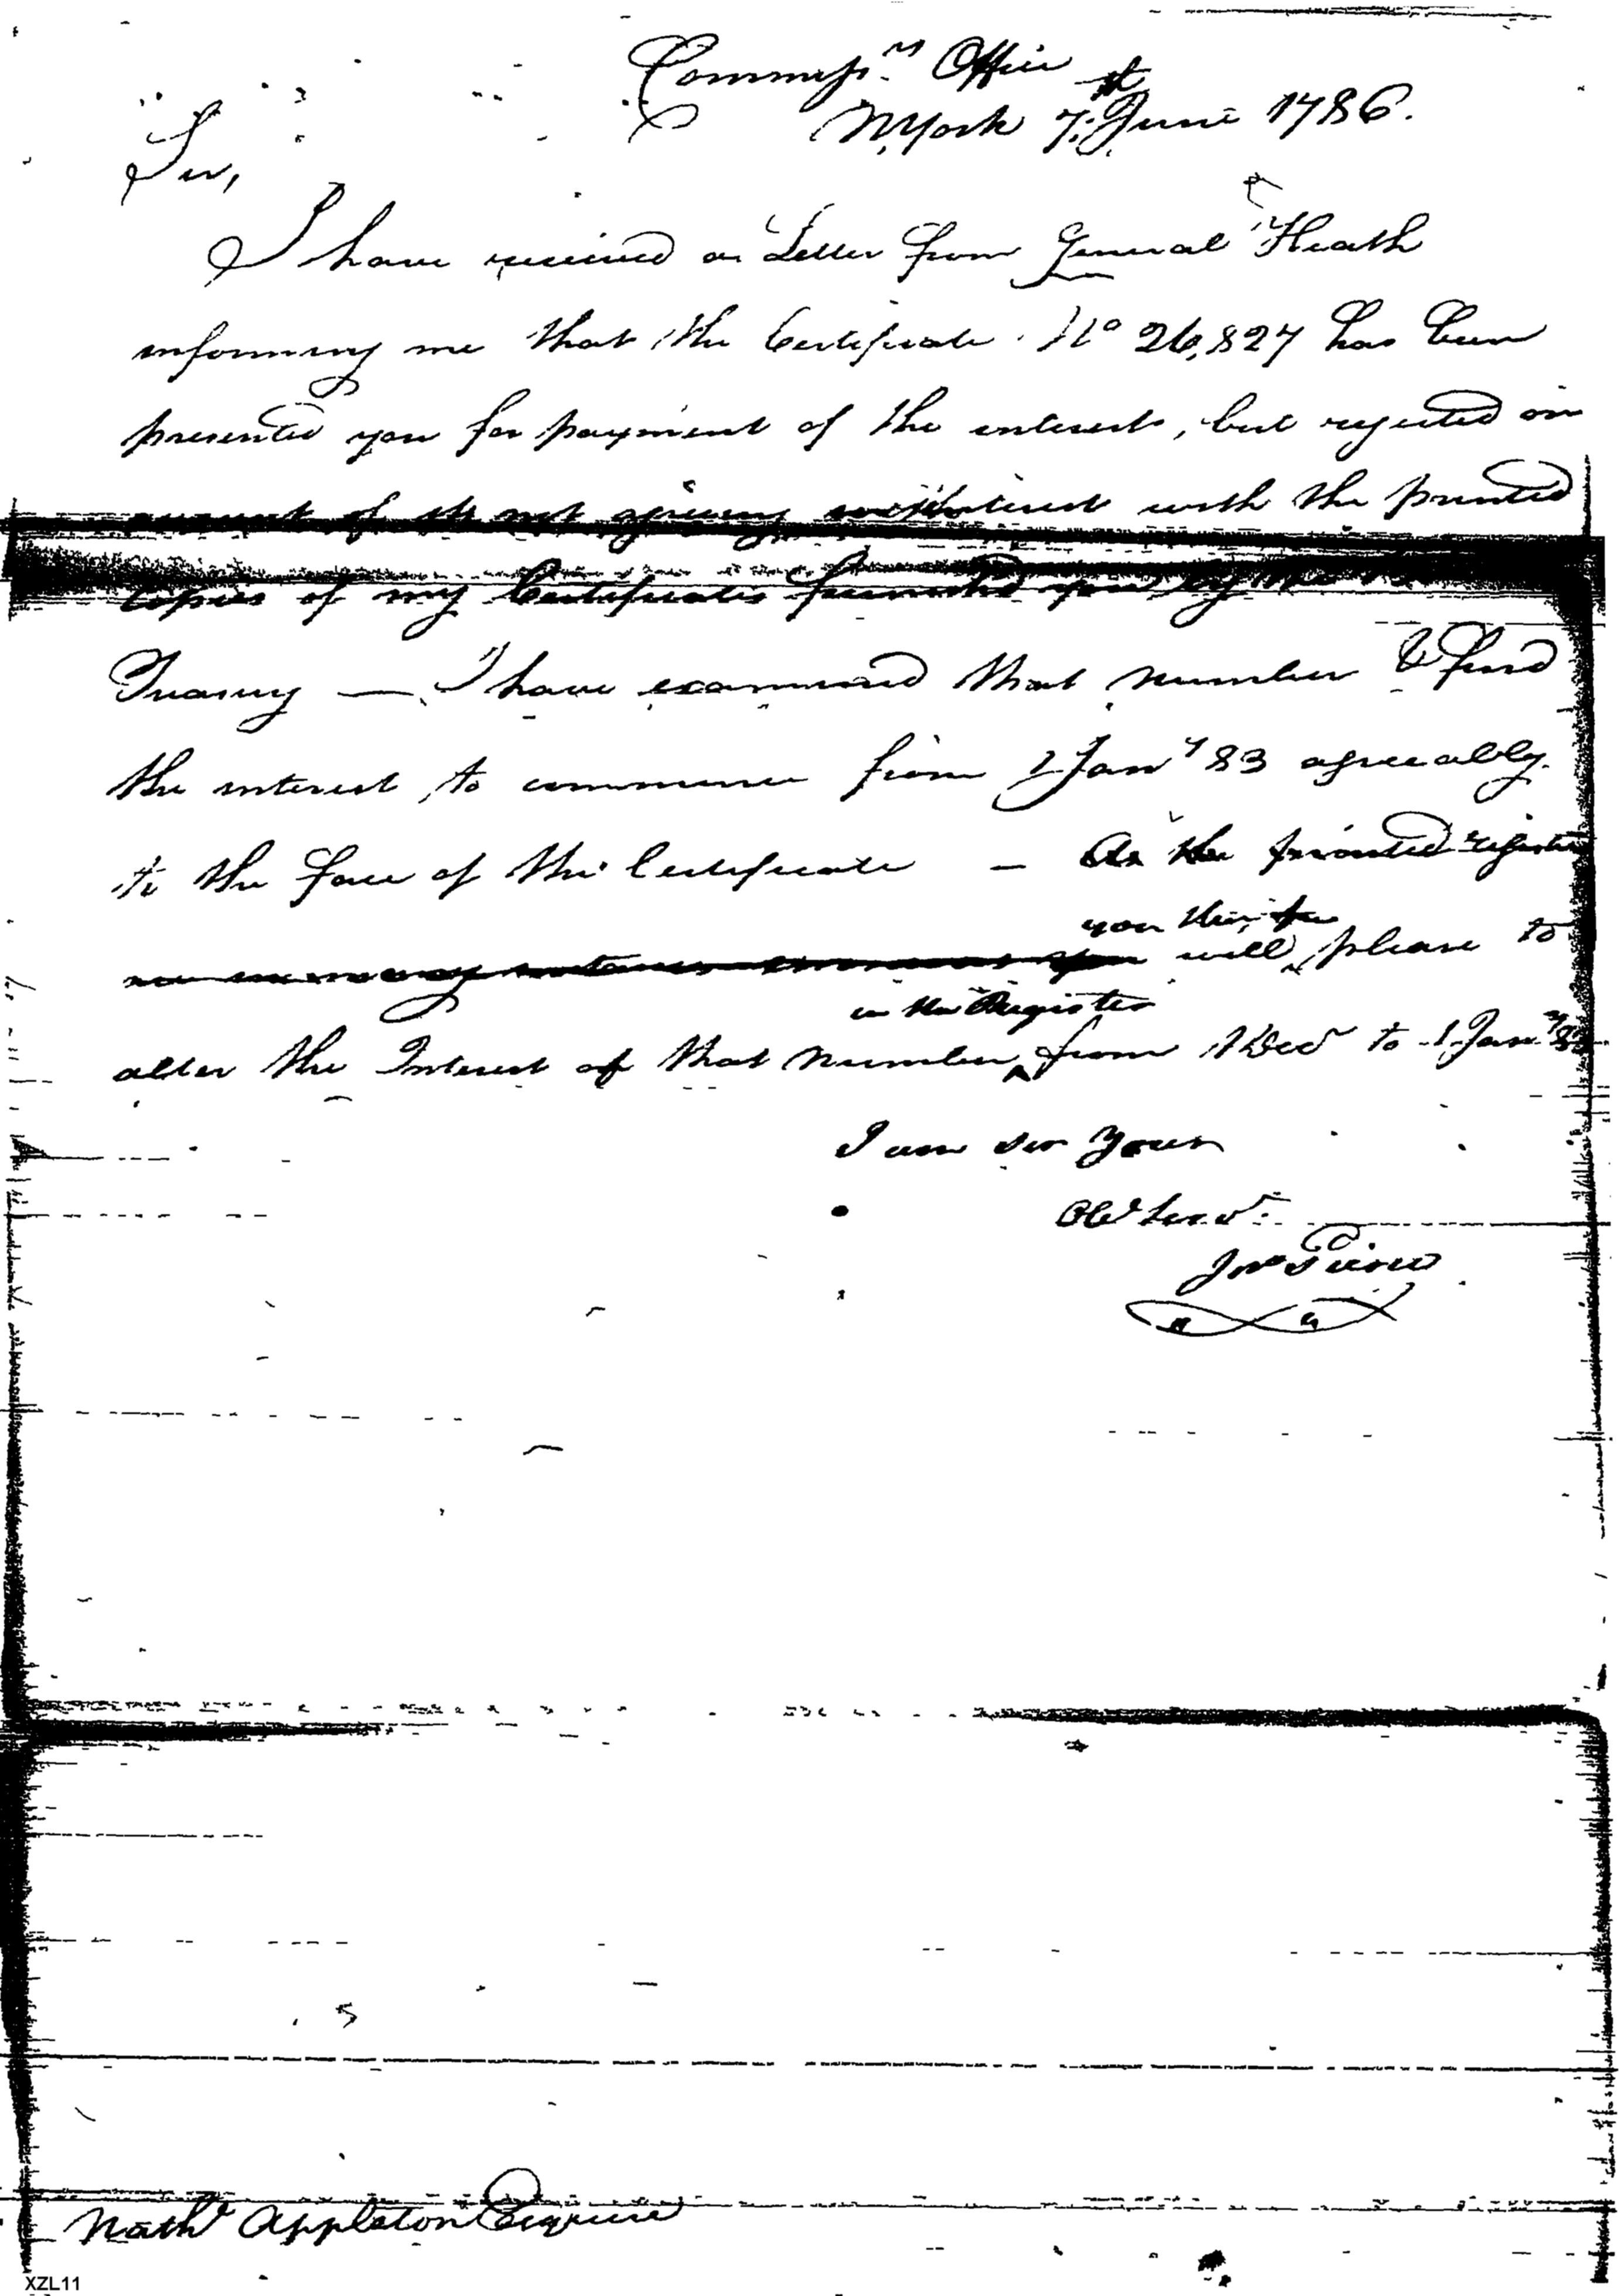 Commissrs Office
N. York 7. June 1786.
Sir,
I have received a Letter from General Heath
informing me that the Certificate No 26,827 has been
presented you for payment of the interest, but rejected on
account of its not agreeing interest with the printed
copies of my Certificates furnished you by the
Treasury — I have examined that number & find
the interest to commence from 1 Jany 83 agreeably
to the face of the Certificate — As the printed register
you
will please to
in the Register
alter the Interest of that number from 1 Decr to 1 Jany 83
I am Sir Your
Obt Servt.
Jno Pierce
Nathl Appleton Esquire
XZL11